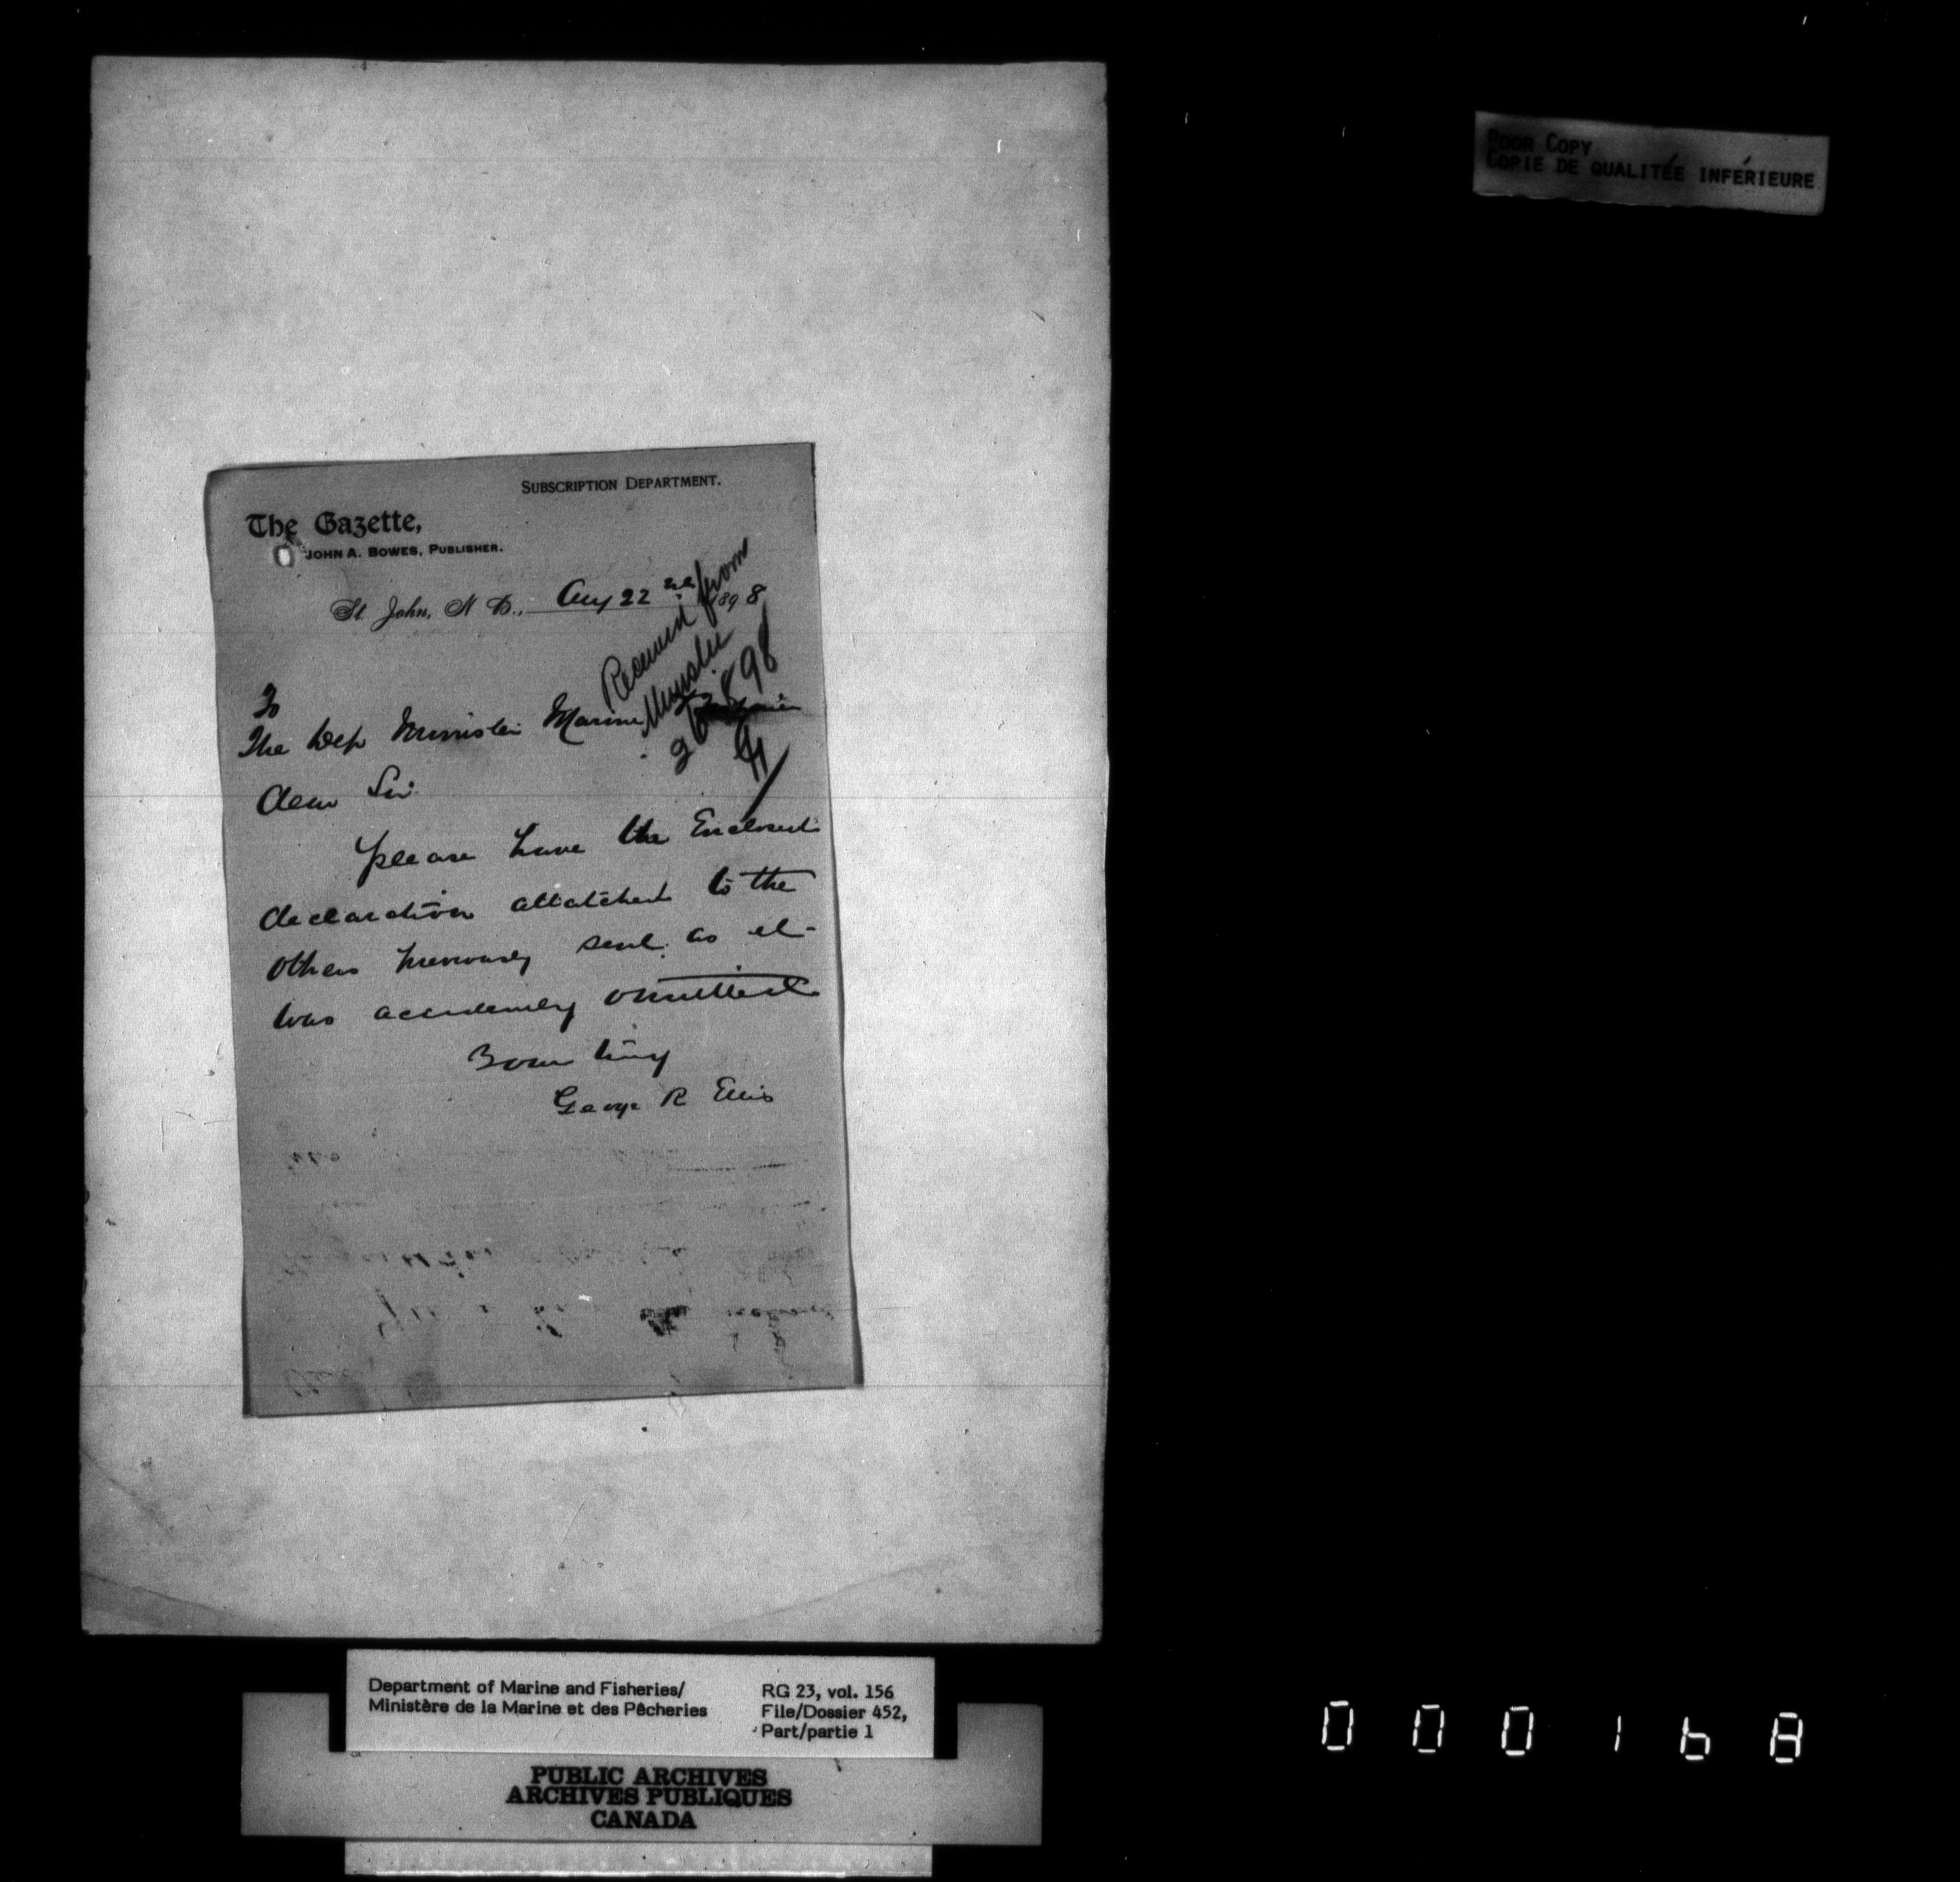 POOR COPY
COPIE DE QUALITÉE INFÉRIEURE
SUBSCRIPTION DEPARTMENT.
The Gazette,
JOHN A. BOWES, PUBLISHER.
St. John, N. B., Aug 22nd 1898
Received from
Minister
98
To
The Dep Minister Marine
Dear Sir
please have the Enclosed
declaration attatched to the
others previously sent. as it
was accidently omitted
Yours truly
George R Ellis
Department of Marine and Fisheries/
Ministère de la Marine et des Pêcheries
RG 23, vol. 156
File/Dossier 452,
Part/partie 1
PUBLIC ARCHIVES
ARCHIVES PUBLIQUES
CANADA
000168